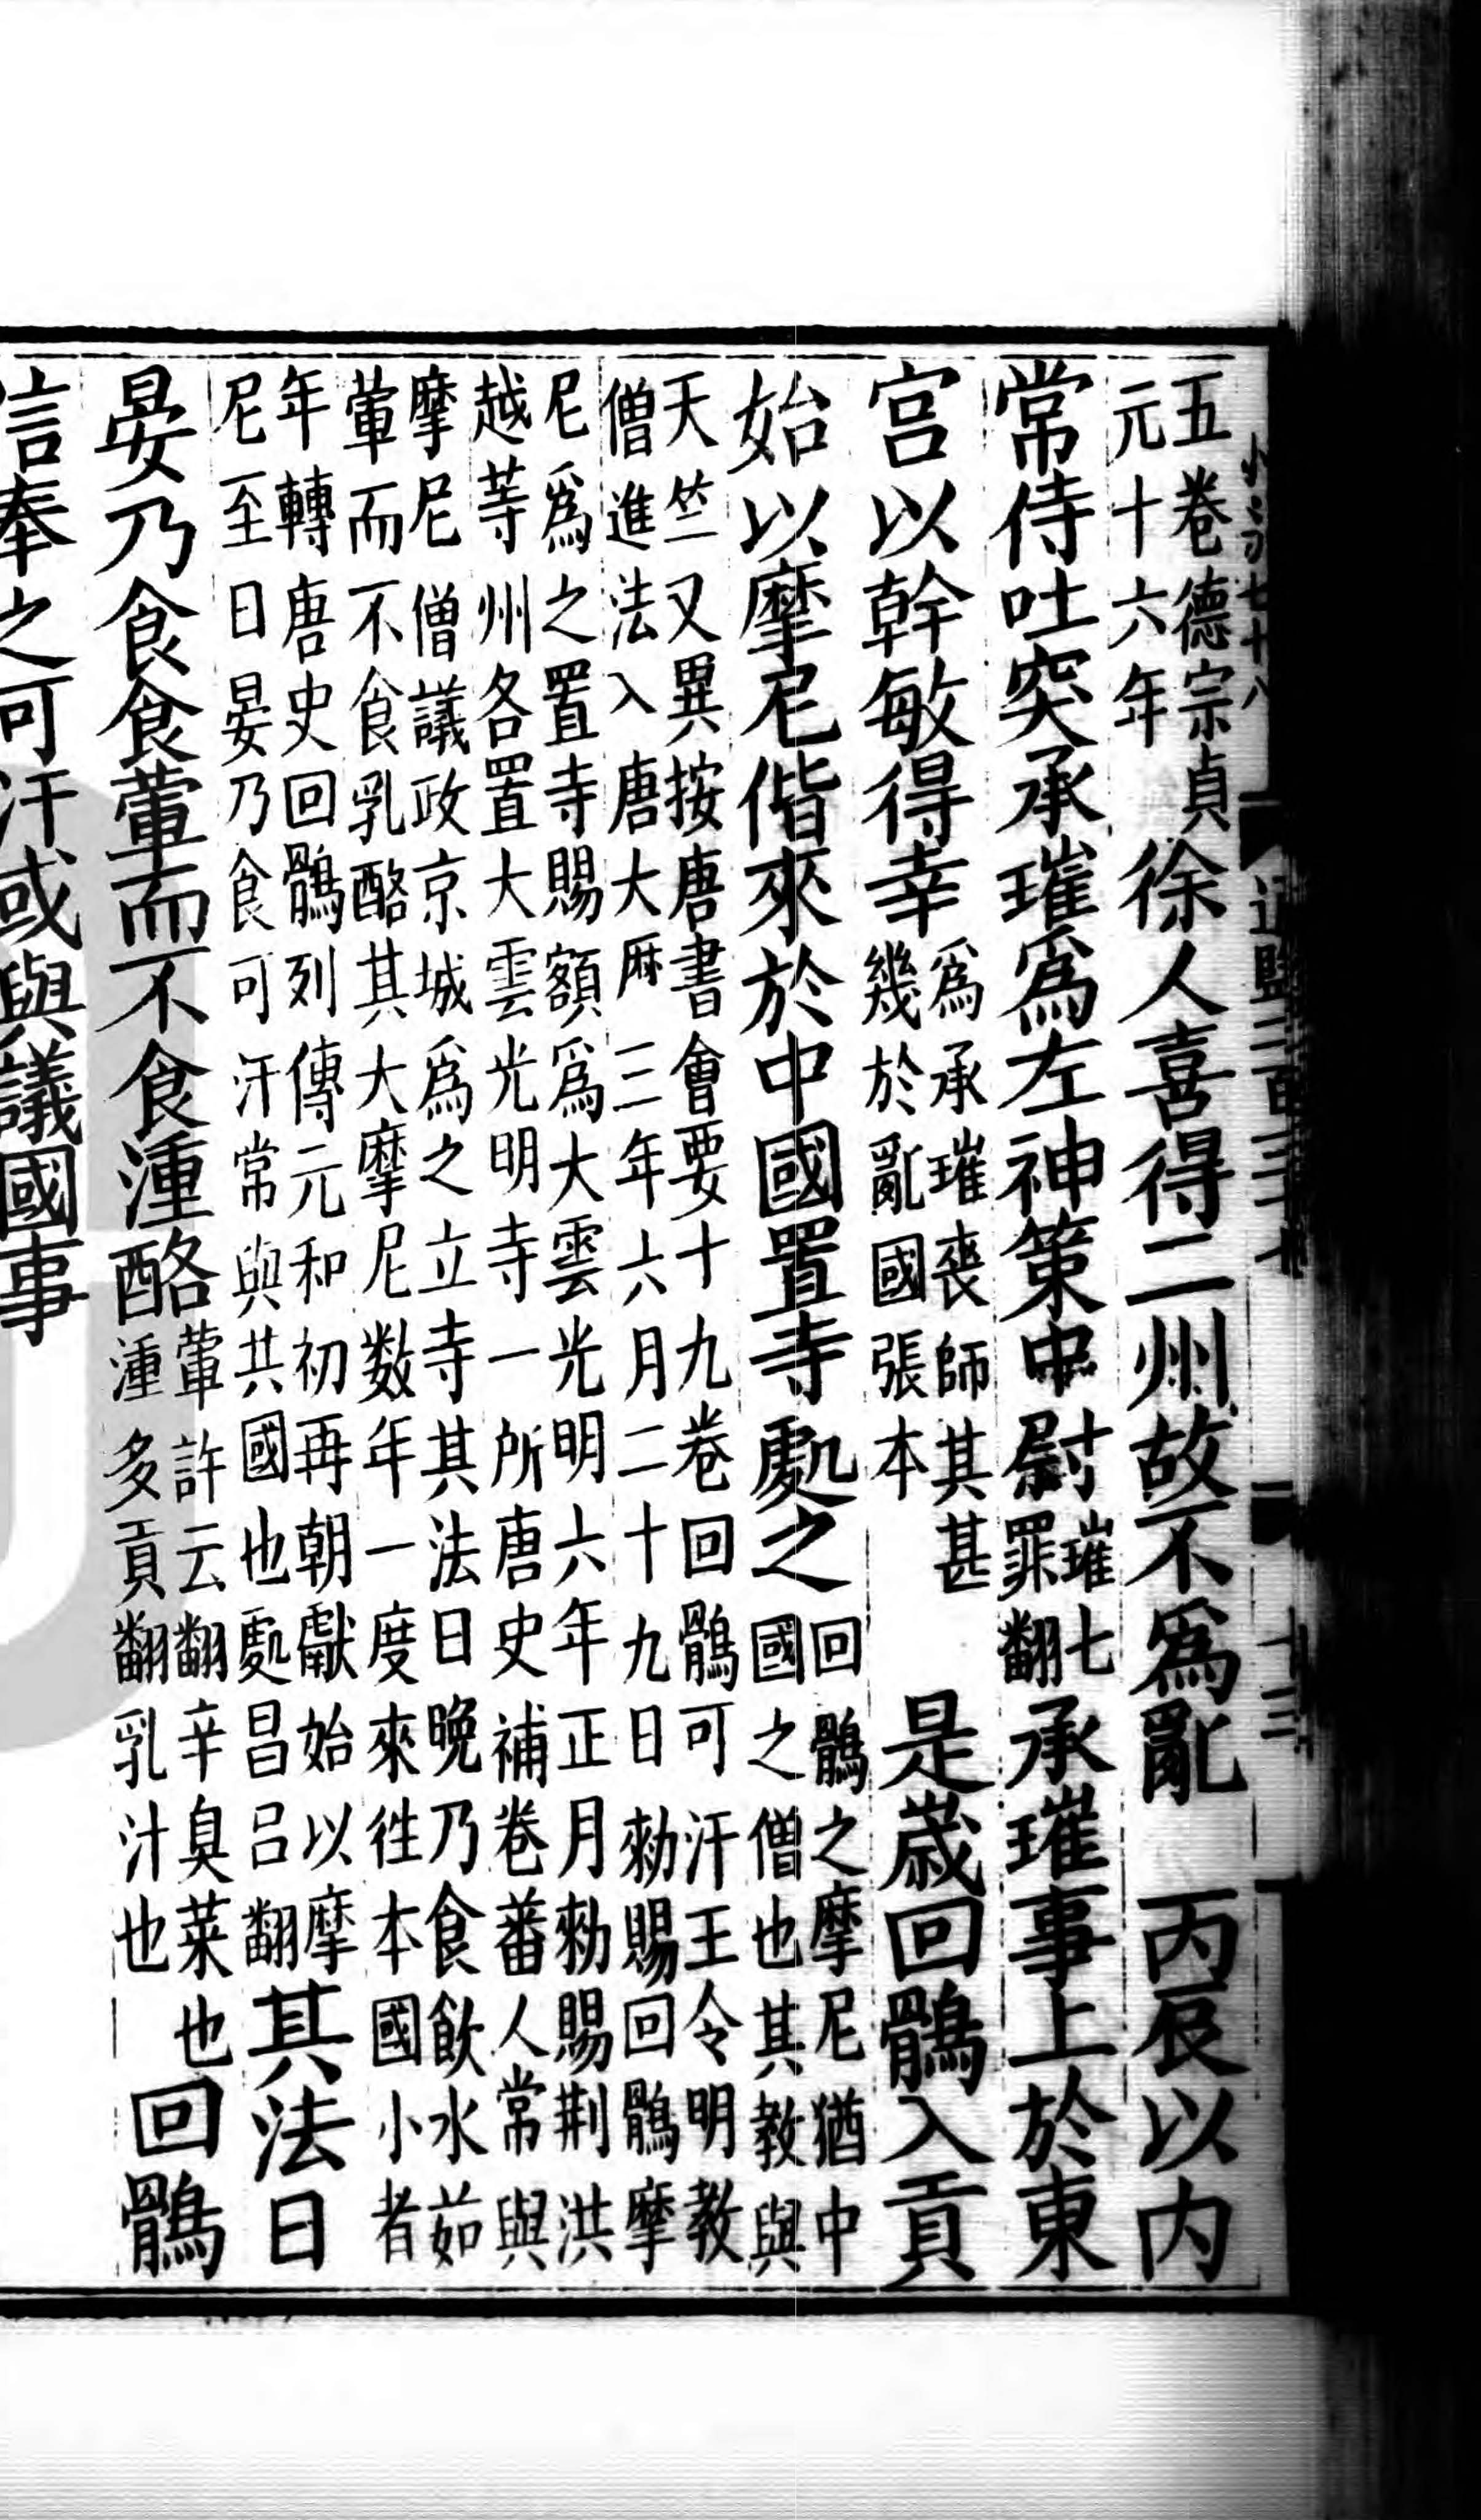 五卷德宗貞元十六年徐人喜得二州故不爲亂　丙辰以内
常侍吐突承璀爲左神策中尉璀七罪翻承璀事上於東
宫以幹敏得幸爲承璀喪師其甚幾於亂國張本是歲回鶻入貢
始以摩尼偕來於中國置寺處之回鶻之摩尼猶中國之僧也其教與
天竺又異按唐書會要十九卷回鶻可汗王令明教僧進法入唐大厤三年六月二十九日勑賜回鶻摩
尼爲之置寺賜額爲大雲光明六年正月勑賜荆洪越等州各置大雲光明寺一所唐史補卷蕃人常與
摩尼僧議政京城爲之立寺其法日晚乃食飲水茹葷而不食乳酪其大摩尼数年一度來徃本國小者
年轉唐史回鶻列傳元和初再朝獻始以摩尼至日晏乃食可汗常與共國也處昌呂翻其法日
晏乃食食葷而不食湩酪葷許云翻辛臭菜也湩多貢翻乳汁也回鶻
信奉之可汗或與議國事